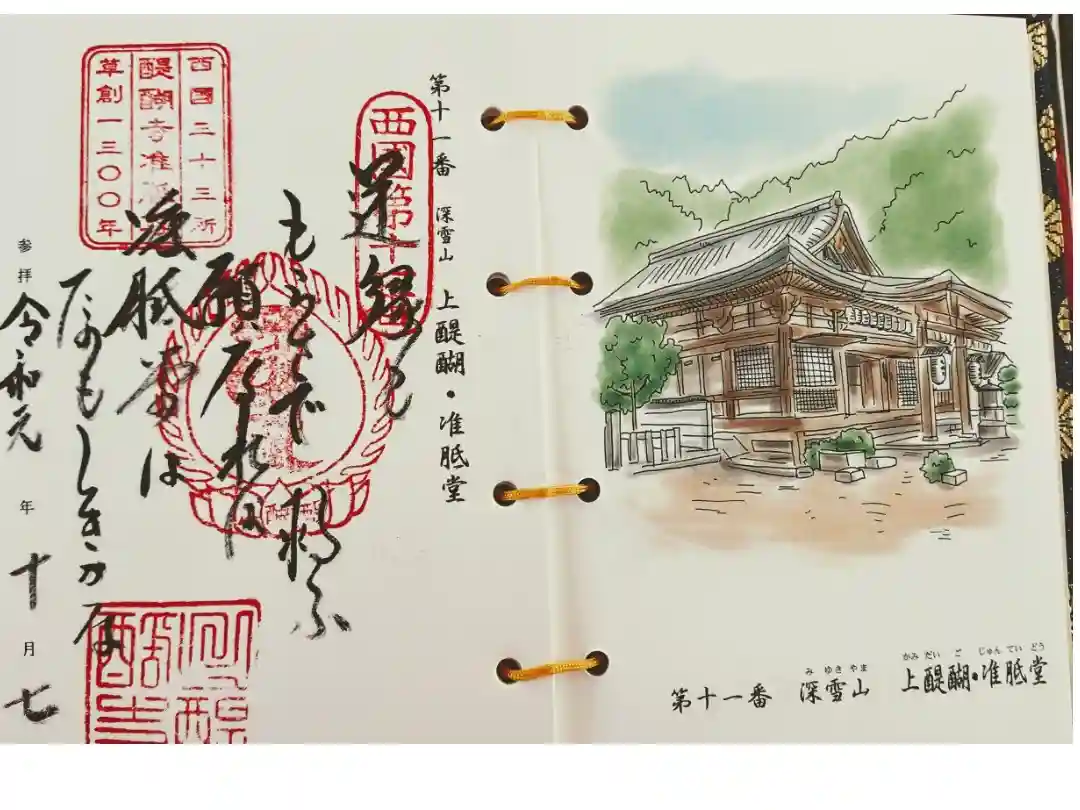 第十一番 深雪山 上醍醐・准胝堂
みゆきやま かみだいご じゅんていどう
第十一番 深雪山 上醍醐・准胝堂
西國第十
逆縁も
もらさで救ふ
願なれば
准胝堂は
たのもしきかな
西國三十三所
醍醐寺准
草創一三〇〇年
参拝 令和元年十月七